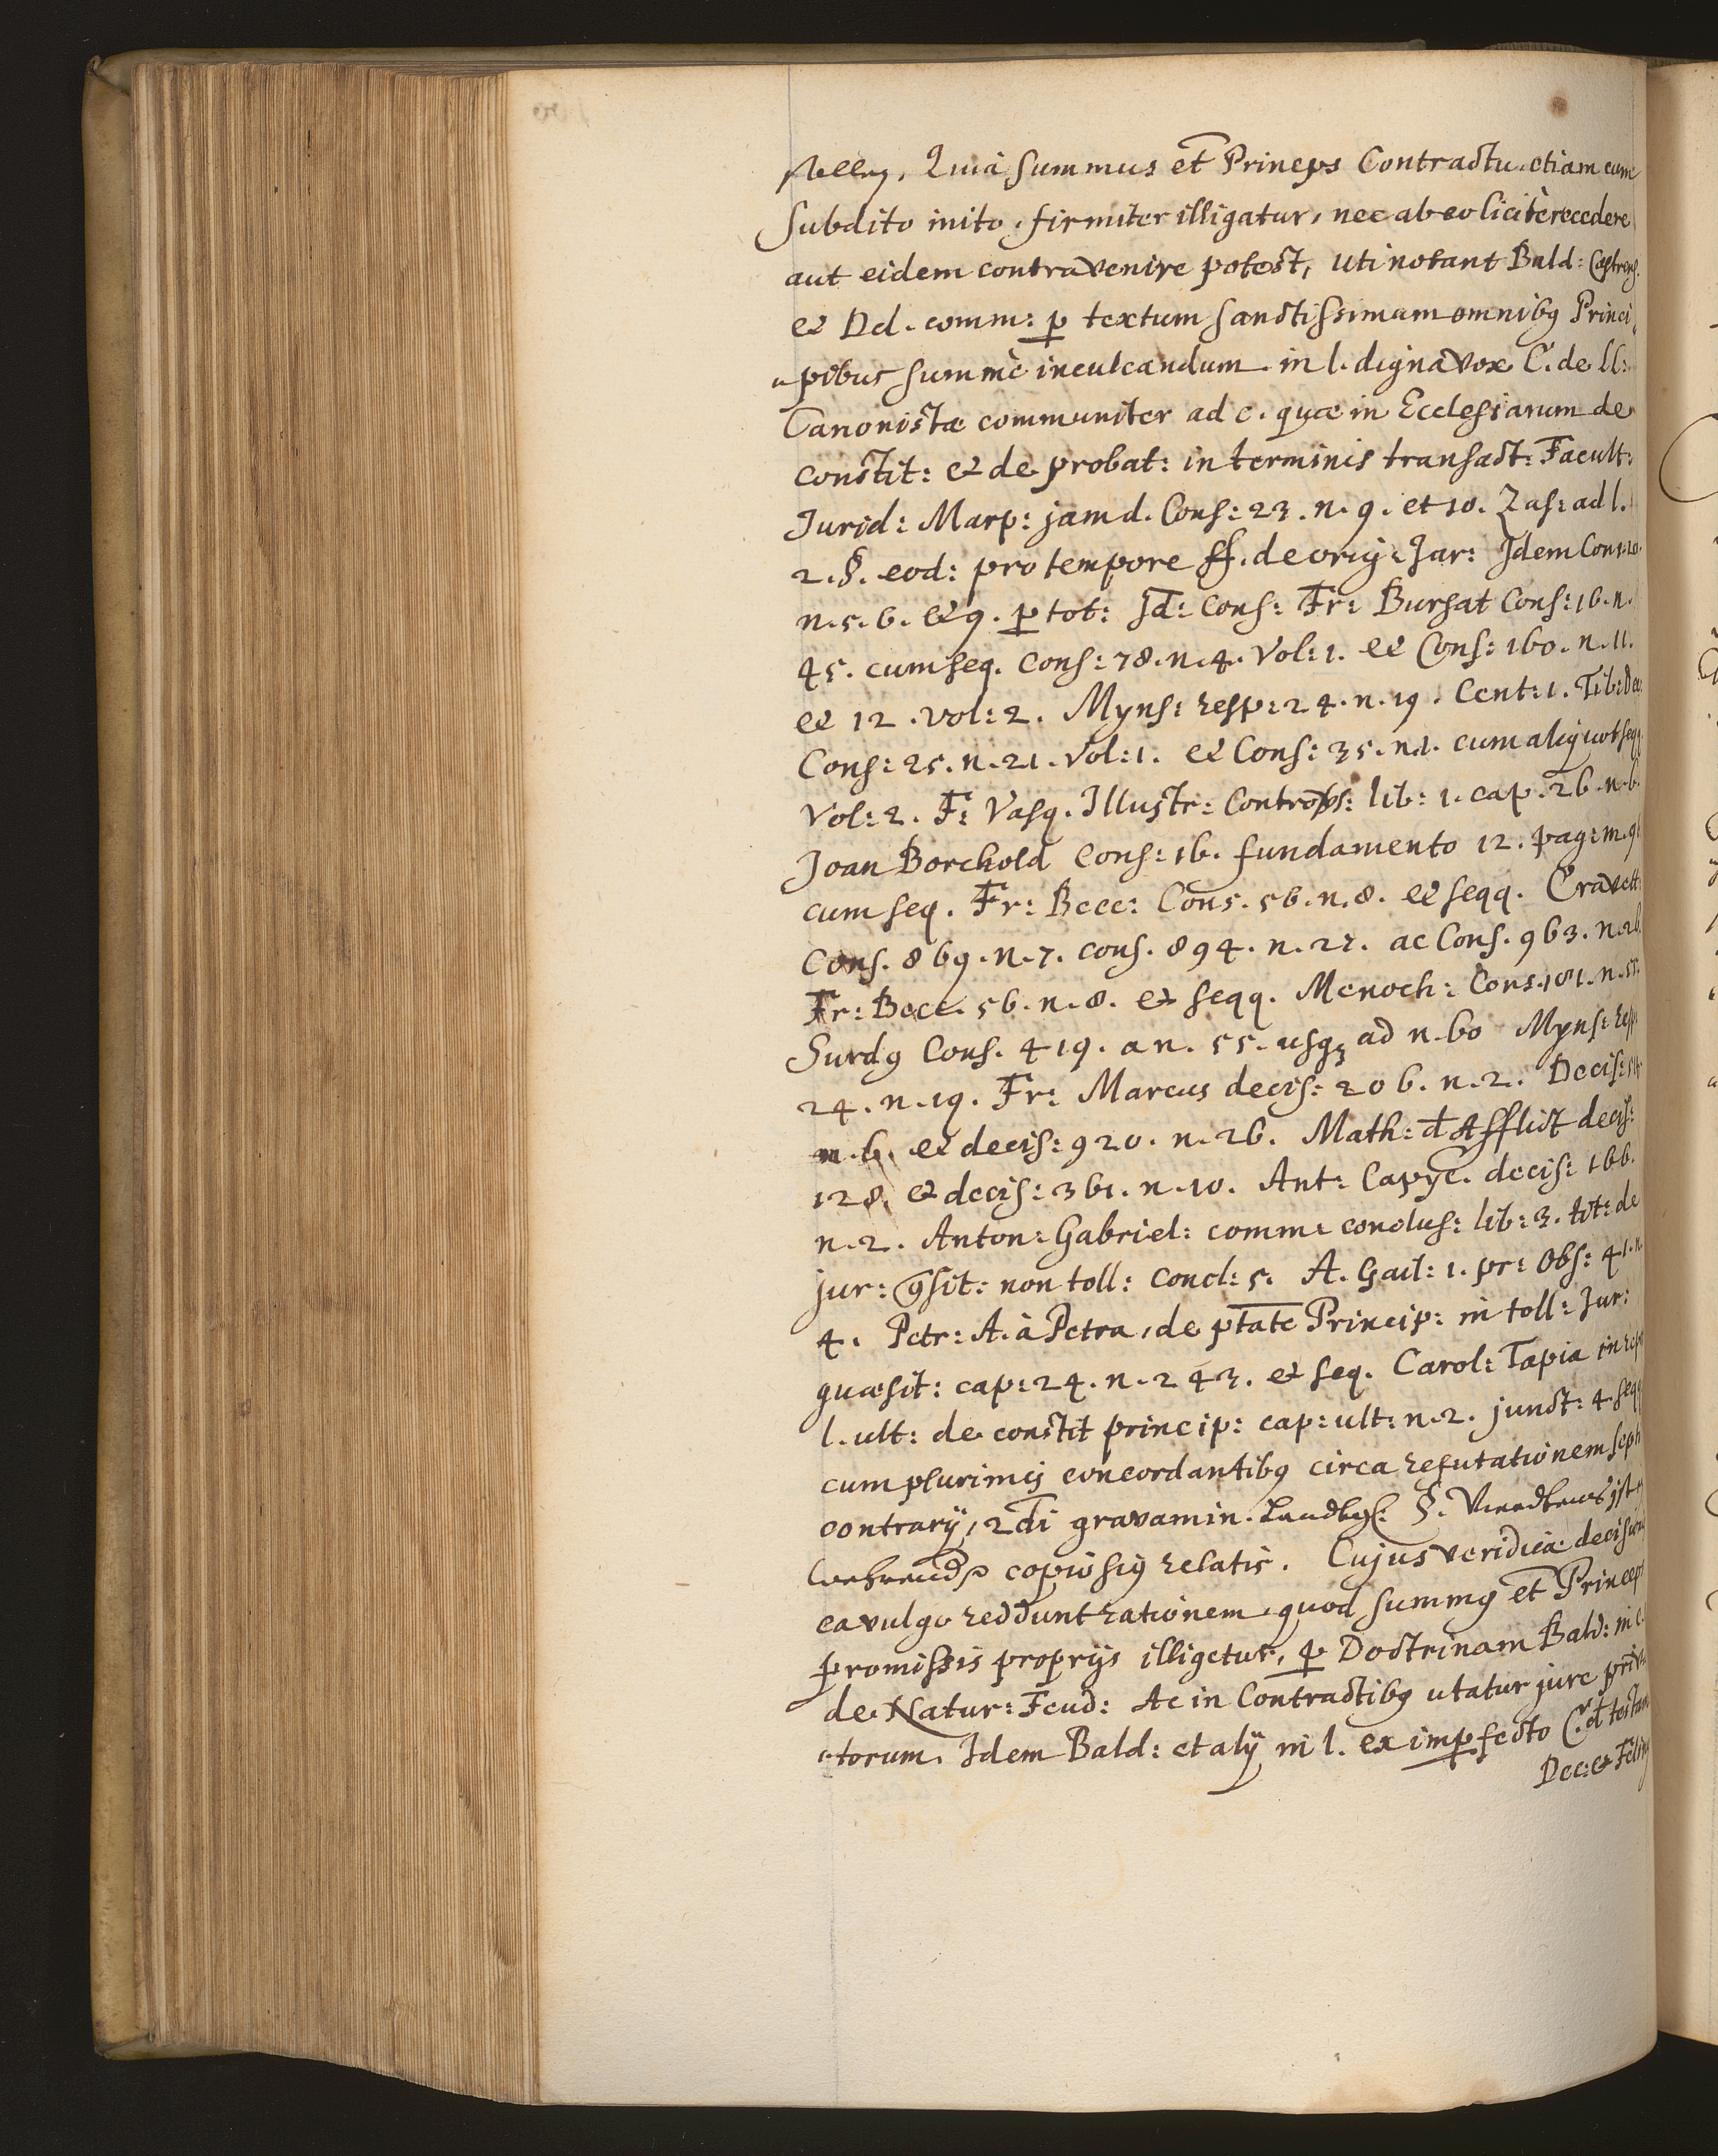 stellen, Quia summus et Princeps Contractu etiam cum
Subdito inito, firmiter illigatur, nec ab eo licitè recedere
aut eidem contravenire potest, uti notant Bald: Castrens.
et Dd. comm: p textum sanctissimam omnibq Princi
pibus summè inculcandum in l. digna vox C. de ll:
Canonistæ communiter ad c. quæ in Ecclesiarum de
constit: et de probat: in terminis transact: Facult:
Jurid: Marp: jam d. Cons: 23. n. 9. et 10. Zas: ad l.
2. §. eod: pro tempore ff. de orig: Jur: Idem Cons: 10.
n. 5. 6. et 9. p tot: Id: Cons: Fr: Bursat Cons: 16. n.
45. cum seq. Cons: 78. n. 4. Vol: 1. et Cons: 160. n. 11.
et 12. vol: 2. Myns: resp: 24. n. 19. Cent: 1. Tib: Dec
Cons: 25. n. 21. Vol: 1. et Cons: 35. n. 1. cum aliquot seqq
Vol: 2. F: Vasq. Illustr: Controvs: lib: 1. cap. 26. n. 6.
Joan Borchold Cons: 16. fundamento 12. pag: m. 9
cum seq. Fr: Becc: Cons. 56. n. 8. et seqq. Cravett:
Cons. 869. n. 7. cons. 894. n. 27. ac Cons. 963. n. 26.
Fr: Becc. 56. n. 8. et seqq. Menoch: Cons. 181. n. 57.
Surdq Cons. 419. a n. 55. usq ad n. 60 Myns: resp
24. n. 19. Fr: Marcus decis: 206. n. 2. Decis:
n. 6. et decis: 920. n. 26. Math: d Afflict decis:
128. et decis: 361. n. 10. Ant: Capyc. decis: 166.
n. 2. Anton: Gabriel: comm: conclus: lib: 3. tit: de
jur: qsit: non toll: concl: 5. A. Gail: 1. pr: Obs: 41. n.
4. Petr: A. à Petra, de ptate Princip: in toll: Jur:
quæsit: cap: 24. n. 243. et seq. Carol: Tapia in rep
l. ult: de constit princip: cap: ult: n. 2. junct: 4 seqq
cum plurimis concordantibq circa refutationem sept
contrarij, 2di gravamin. Landtgf: §.
copiosiq relatis. Cujus veridicæ decision
ea vulgo reddunt rationem, quod summq et Princeps
promissis proprijs illigetur, p Doctrinam Bald: in l.
de Natur: Feud: Ac in Contractibq utatur jure priva
torum. Idem Bald: et alij in l. ex impfecto C. d testam
Dec: et Felin